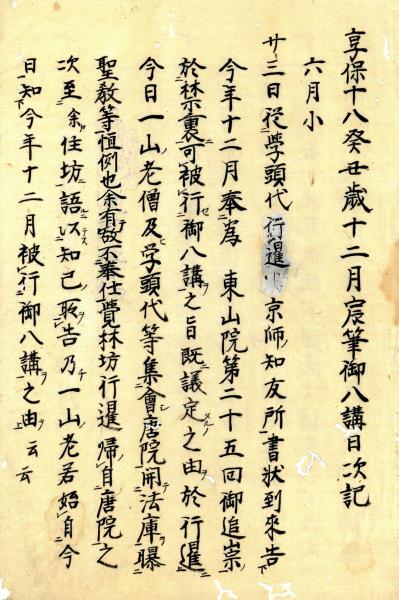 享保十八癸丑歳十二月宸筆御八講日次記
六月小
廿三日従学頭代行暹京師ノ知友所書状到來告下
今年十二月奉為 東山院第二十五回御追崇ノ
於禁裏可被行御八講之旨既議定之由於行暹
今日一山老僧及学頭代等集會唐院開法庫曝
聖教等恒例也余有故不奉仕覺林坊行暹帰自唐院之
次至余住坊語以知己ノ所告乃一山老若始自今
日知今年十二月被行御八講之由云云